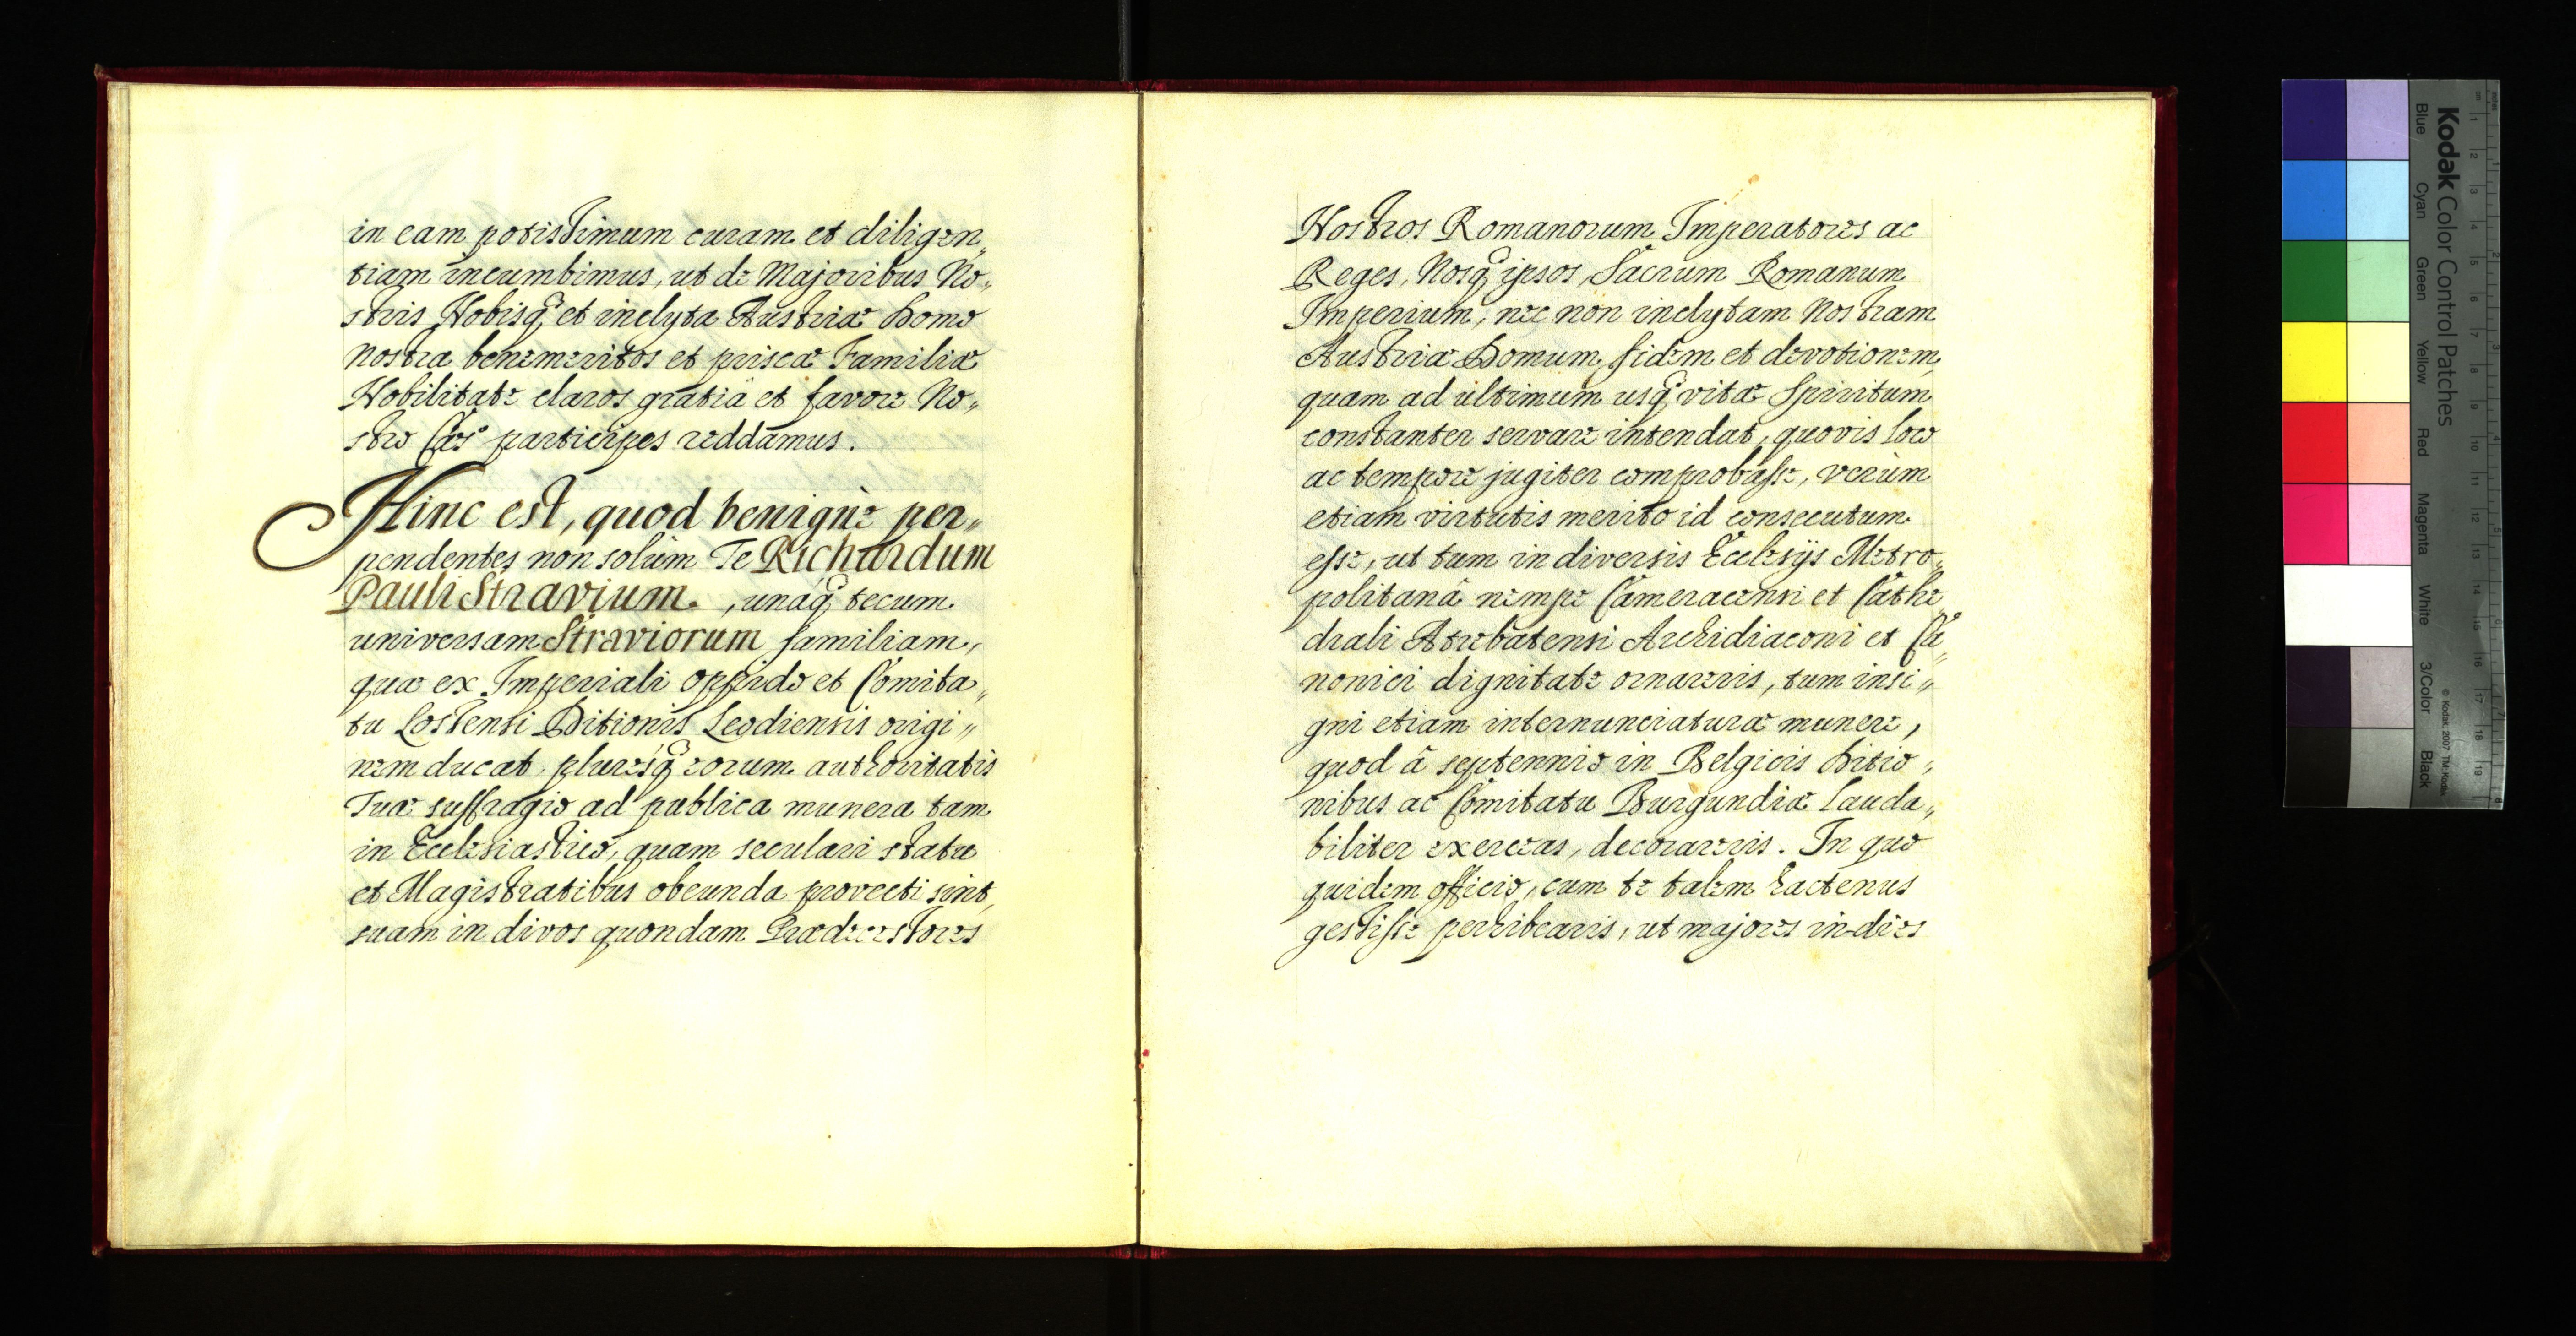 in eam potissimum curam et diligen„
tiam incumbimus, ut de Majoribus No„
stris Nobisq et inclyta Austriæ Domo
Nostra benemeritos et priscæ Familiæ
Nobilitate claros gratiâ et favore No„
stro Cæs.º participes reddamus.
Hinc est, quod benignè per„
pendentes non solùm Te Richardum
Pauli Stravium, unáq tecum
universam Straviorum familiam,
quæ ex Imperiali oppido et Comita„
tu Lostensi Ditionis Leodiensis origi„
nem ducat, pluresq eorum authoritatis
Tuæ suffragio ad publica munera tam
in Ecclesiastico, quam seculari statu
et Magistratibus obeunda provecti sint,
suam in divos quondam Prædecessores
Nostros Romanorum Imperatores ac
Reges, Nosq ipsos, Sacrum Romanum
Imperium, nec non inclytam Nostram
Austriæ Domum, fidem et devotionem,
quam ad ultimum usq vitæ Spiritum
constanter servare intendat, quovis loco
ac tempore jugiter comprobâsse, verùm
etiam virtutis merito id consecutum
esse, ut tum in diversis Ecclesijs Metro„
politanâ nempe Cameracensi et Cathe„
drali Atrebatensi Archidiaconi et Ca„
nonici dignitate ornareris, tum insi„
gni etiam internunciaturæ munere,
quod â septennio in Belgicis Ditio„
nibus ac Comitatu Burgundiæ lauda„
biliter exerceas, decorareris. In quo
quidem officio, cum te talem hactenus
gestisse perhibearis, ut majores in-dies
Kodak Color Control Patches
Blue Cyan Green Yellow Red Magenta White 3/Color Black